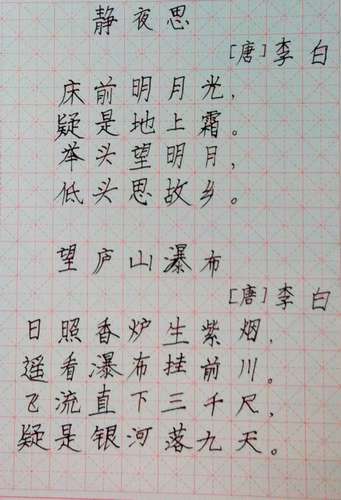 静夜思
[唐]李白
床前明月光，
疑是地上霜。
举头望明月，
低头思故乡。
望庐山瀑布
[唐]李白
日照香炉生紫烟，
遥看瀑布挂前川。
飞流直下三千尺，
疑是银河落九天。